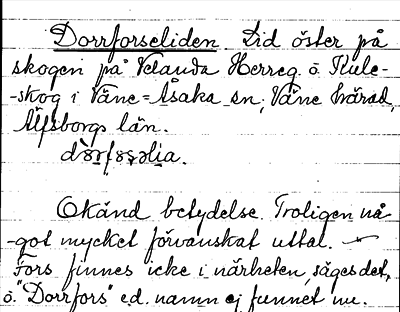 Dorrforseliden. Lid öster på
skogen på Velanda Herreg. o. Kule-
-skog i Väne-Åsaka sn, Väne härad,
Älfsborgs län.
Okänd betydelse. Troligen nå-
-got mycket förvanskat uttal.
Fors finnes icke i närheten, säges det,
o. "Dorrfors" e.d. namn ej funnet nu.